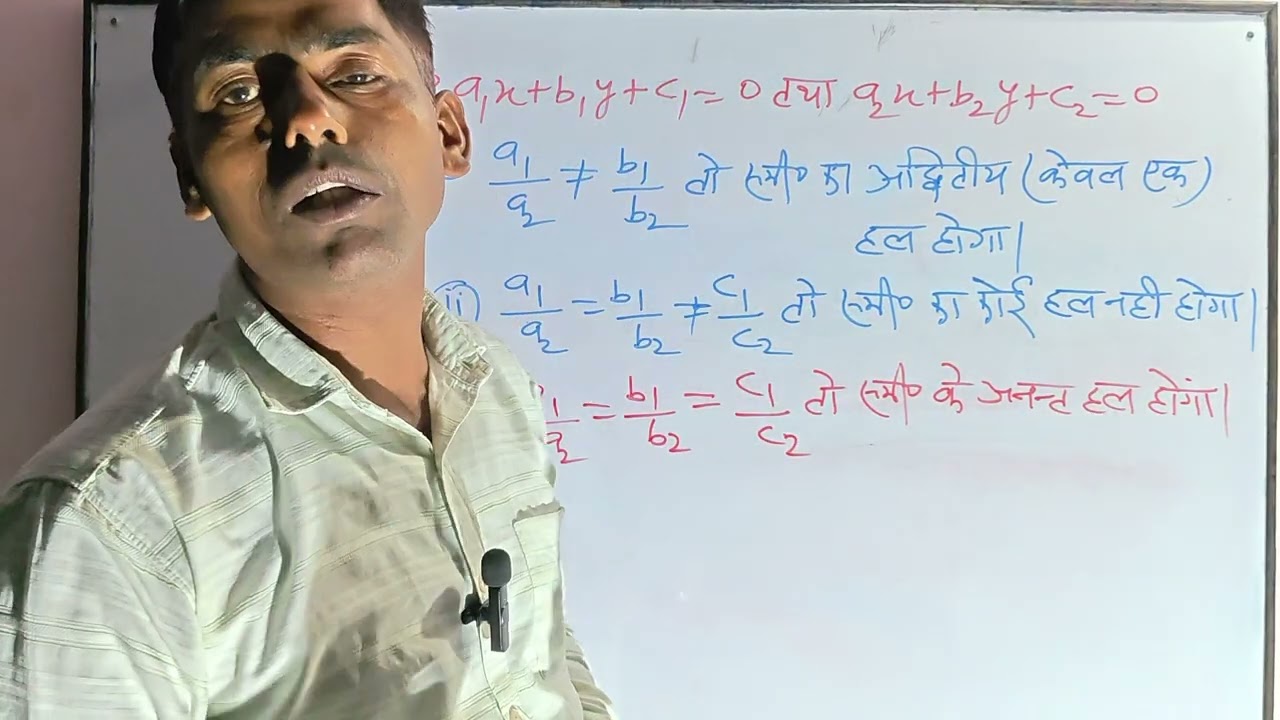 a₁x+b₁y+c₁=0 तथा a₂x+b₂y+c₂=0
a₁/a₂ ≠ b₁/b₂ तो समी० का अद्वितीय (केवल एक)
हल होगा।
ii) a₁/a₂ = b₁/b₂ ≠ c₁/c₂ तो समी० का कोई हल नही होगा।
a₁/a₂ = b₁/b₂ = c₁/c₂ तो समी० के अनन्त हल होंगा।